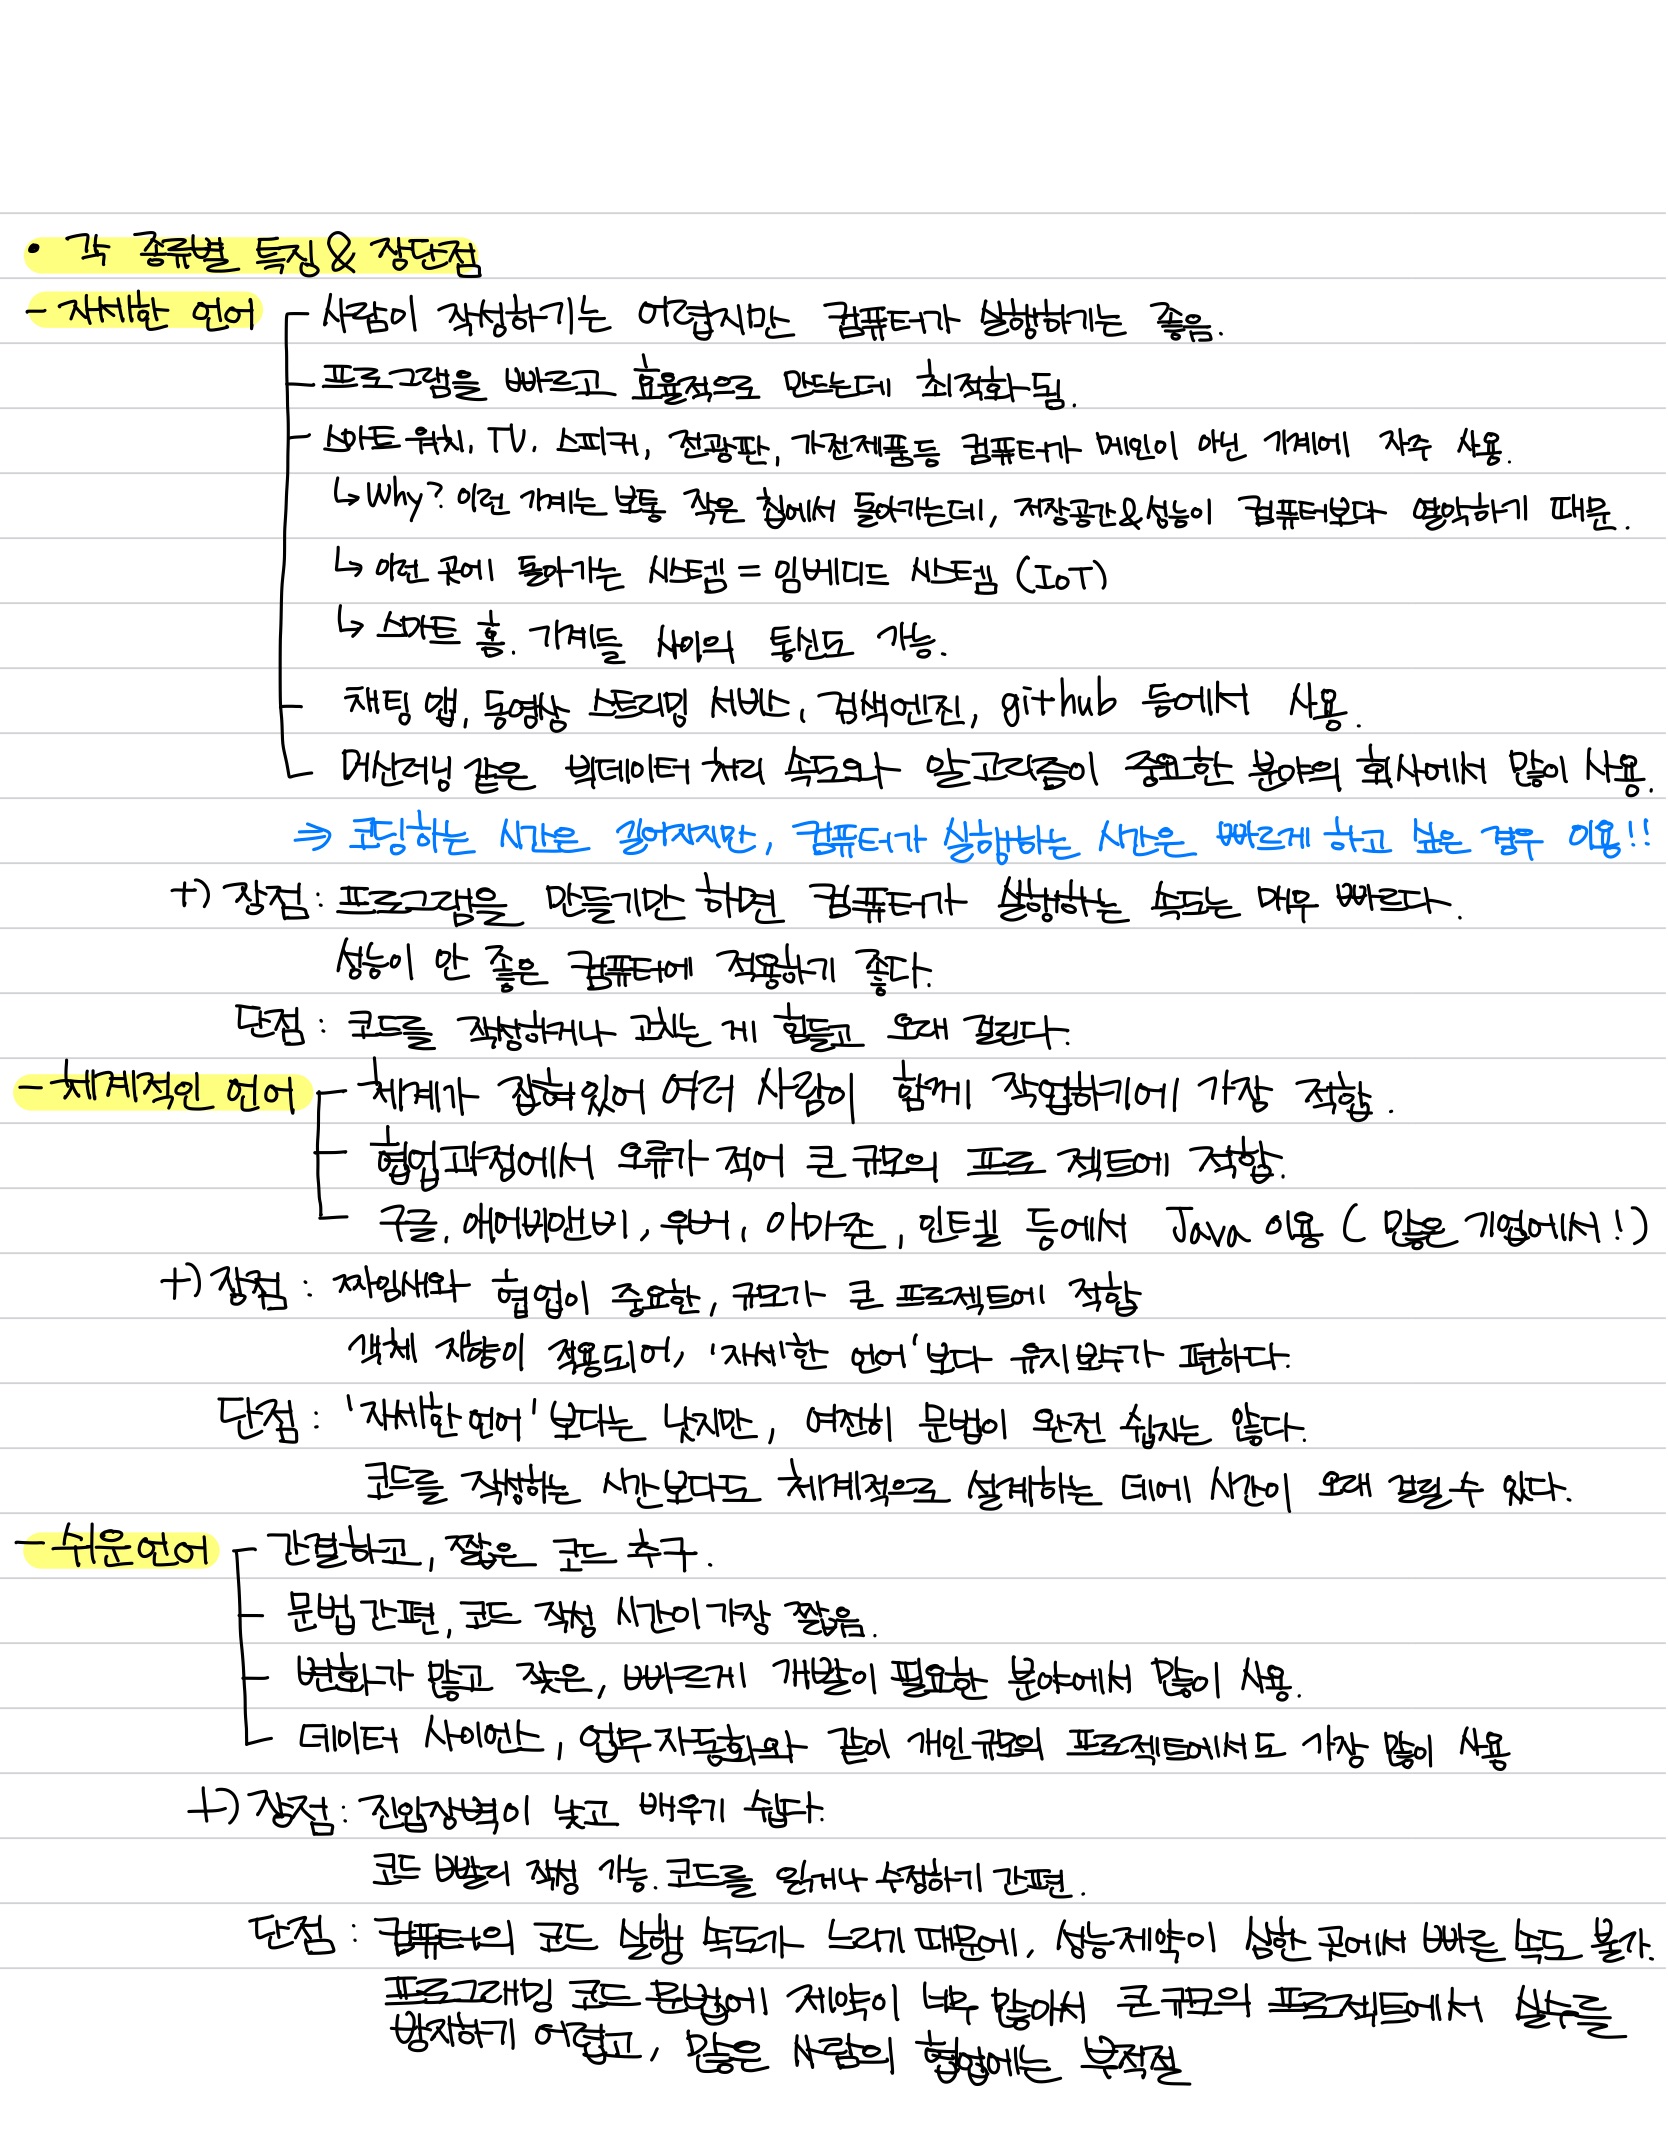 • 각 종류별 특징 & 장단점
- 자세한 언어 - 사람이 작성하기는 어렵지만 컴퓨터가 실행하기는 좋음.
- 프로그램을 빠르고 효율적으로 만드는데 최적화 됨.
- 스마트 워치, TV, 스피커, 전광판, 가전제품등 컴퓨터가 메인이 아닌 기계에 자주 사용.
↳ Why? 이런 기계는 보통 작은 칩에서 돌아가는데, 저장공간&성능이 컴퓨터보다 열악하기 때문.
↳ 이런 곳에 돌아가는 시스템 = 임베디드 시스템 (IoT)
↳ 스마트 홈. 기계들 사이의 통신도 가능.
- 채팅 앱, 동영상 스트리밍 서비스, 검색엔진, github 등에서 사용.
- 머신러닝 같은 빅데이터 처리 속도와 알고리즘이 중요한 분야의 회사에서 많이 사용.
⇒ 코딩하는 시간은 길어지지만, 컴퓨터가 실행하는 시간은 빠르게 하고 싶은 경우 이용!!
+) 장점 : 프로그램을 만들기만 하면 컴퓨터가 실행하는 속도는 매우 빠르다.
성능이 안 좋은 컴퓨터에 적용하기 좋다.
단점 : 코드를 작성하거나 고치는 게 힘들고 오래 걸린다.
- 체계적인 언어 - 체계가 잡혀있어 여러 사람이 함께 작업하기에 가장 적합.
- 협업과정에서 오류가 적어 큰 규모의 프로젝트에 적합.
- 구글, 에어비앤비, 우버, 아마존, 인텔 등에서 Java 이용 ( 많은 기업에서! )
+) 장점 : 짜임새와 협업이 중요한, 규모가 큰 프로젝트에 적합
객체 지향이 적용되어, '자세한 언어'보다 유지보수가 편하다.
단점 : '자세한 언어' 보다는 낫지만, 여전히 문법이 완전 쉽지는 않다.
코드를 작성하는 시간보다도 체계적으로 설계하는 데에 시간이 오래 걸릴 수 있다.
- 쉬운언어 - 간결하고, 짧은 코드 추구.
- 문법 간편, 코드 작성 시간이 가장 짧음.
- 변화가 많고 잦은, 빠르게 개발이 필요한 분야에서 많이 사용.
- 데이터 사이언스, 업무 자동화와 같이 개인규모의 프로젝트에서도 가장 많이 사용
+) 장점 : 진입장벽이 낮고 배우기 쉽다.
코드 빨리 작성 가능. 코드를 읽거나 수정하기 간편.
단점 : 컴퓨터의 코드 실행 속도가 느리기 때문에, 성능제약이 심한 곳에서 빠른 속도 불가.
프로그래밍 코드 문법에 제약이 너무 많아서 큰 규모의 프로젝트에서 실수를
방지하기 어렵고, 많은 사람의 협업에는 부적절